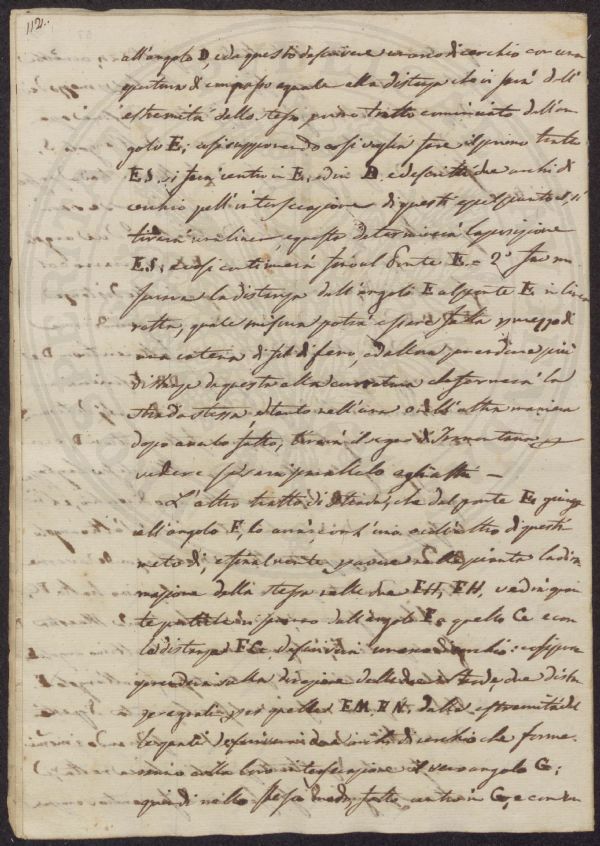 112.
all'angolo D, e da questo descrivere un arco di cerchio con una
apertura di compasso eguale alla distanza che vi sarà dall'
estremità dello stesso primo tratto cominciato dall'an
golo E; così supponendo che si voglia fare il primo tratto
E S, si farà centro in E, ed in D, e descritti due archi di
cerchio nell'intersecazione di questi nel punto S, si
tirerà una linea, e questa determinerà la posizione
E S; e così continuerà fino al Ponte E. = 2° Si mi
surerà la distanza dall'angolo E al ponte E in linea
retta, quale misura potrà essere fatta per mezzo di
una catena di fil di ferro, ed allora prenderne più
distanze da questa alla curvatura che formerà la
strada stessa, e tanto nell'una o nell'altra maniera
dopo averlo fatto, tirerà il segno di Tramontana
vedere se sarà parallelo agli altri —
L'altro tratto di Strada, che dal ponte E giunge
all'angolo F, lo avrà, con l'uno o coll'altro di questi
metodi, e finalmente, avere nella pianta la di
masione della stessa nelle due FH, FH, vedrà qua
te partite vi sieno dall'angolo F a quello G e con
la distanza FG descriverà un arco di cerchio: così pure
prenderà sulla direzione delle due strade, due dista
ze eguali, per quelle FM, FN, dalle estremità del
le quali descriverà due archi di cerchio che forme
ranno colla loro intersecazione il vero angolo G;
quindi nello stesso modo fatto centro in G, e con un